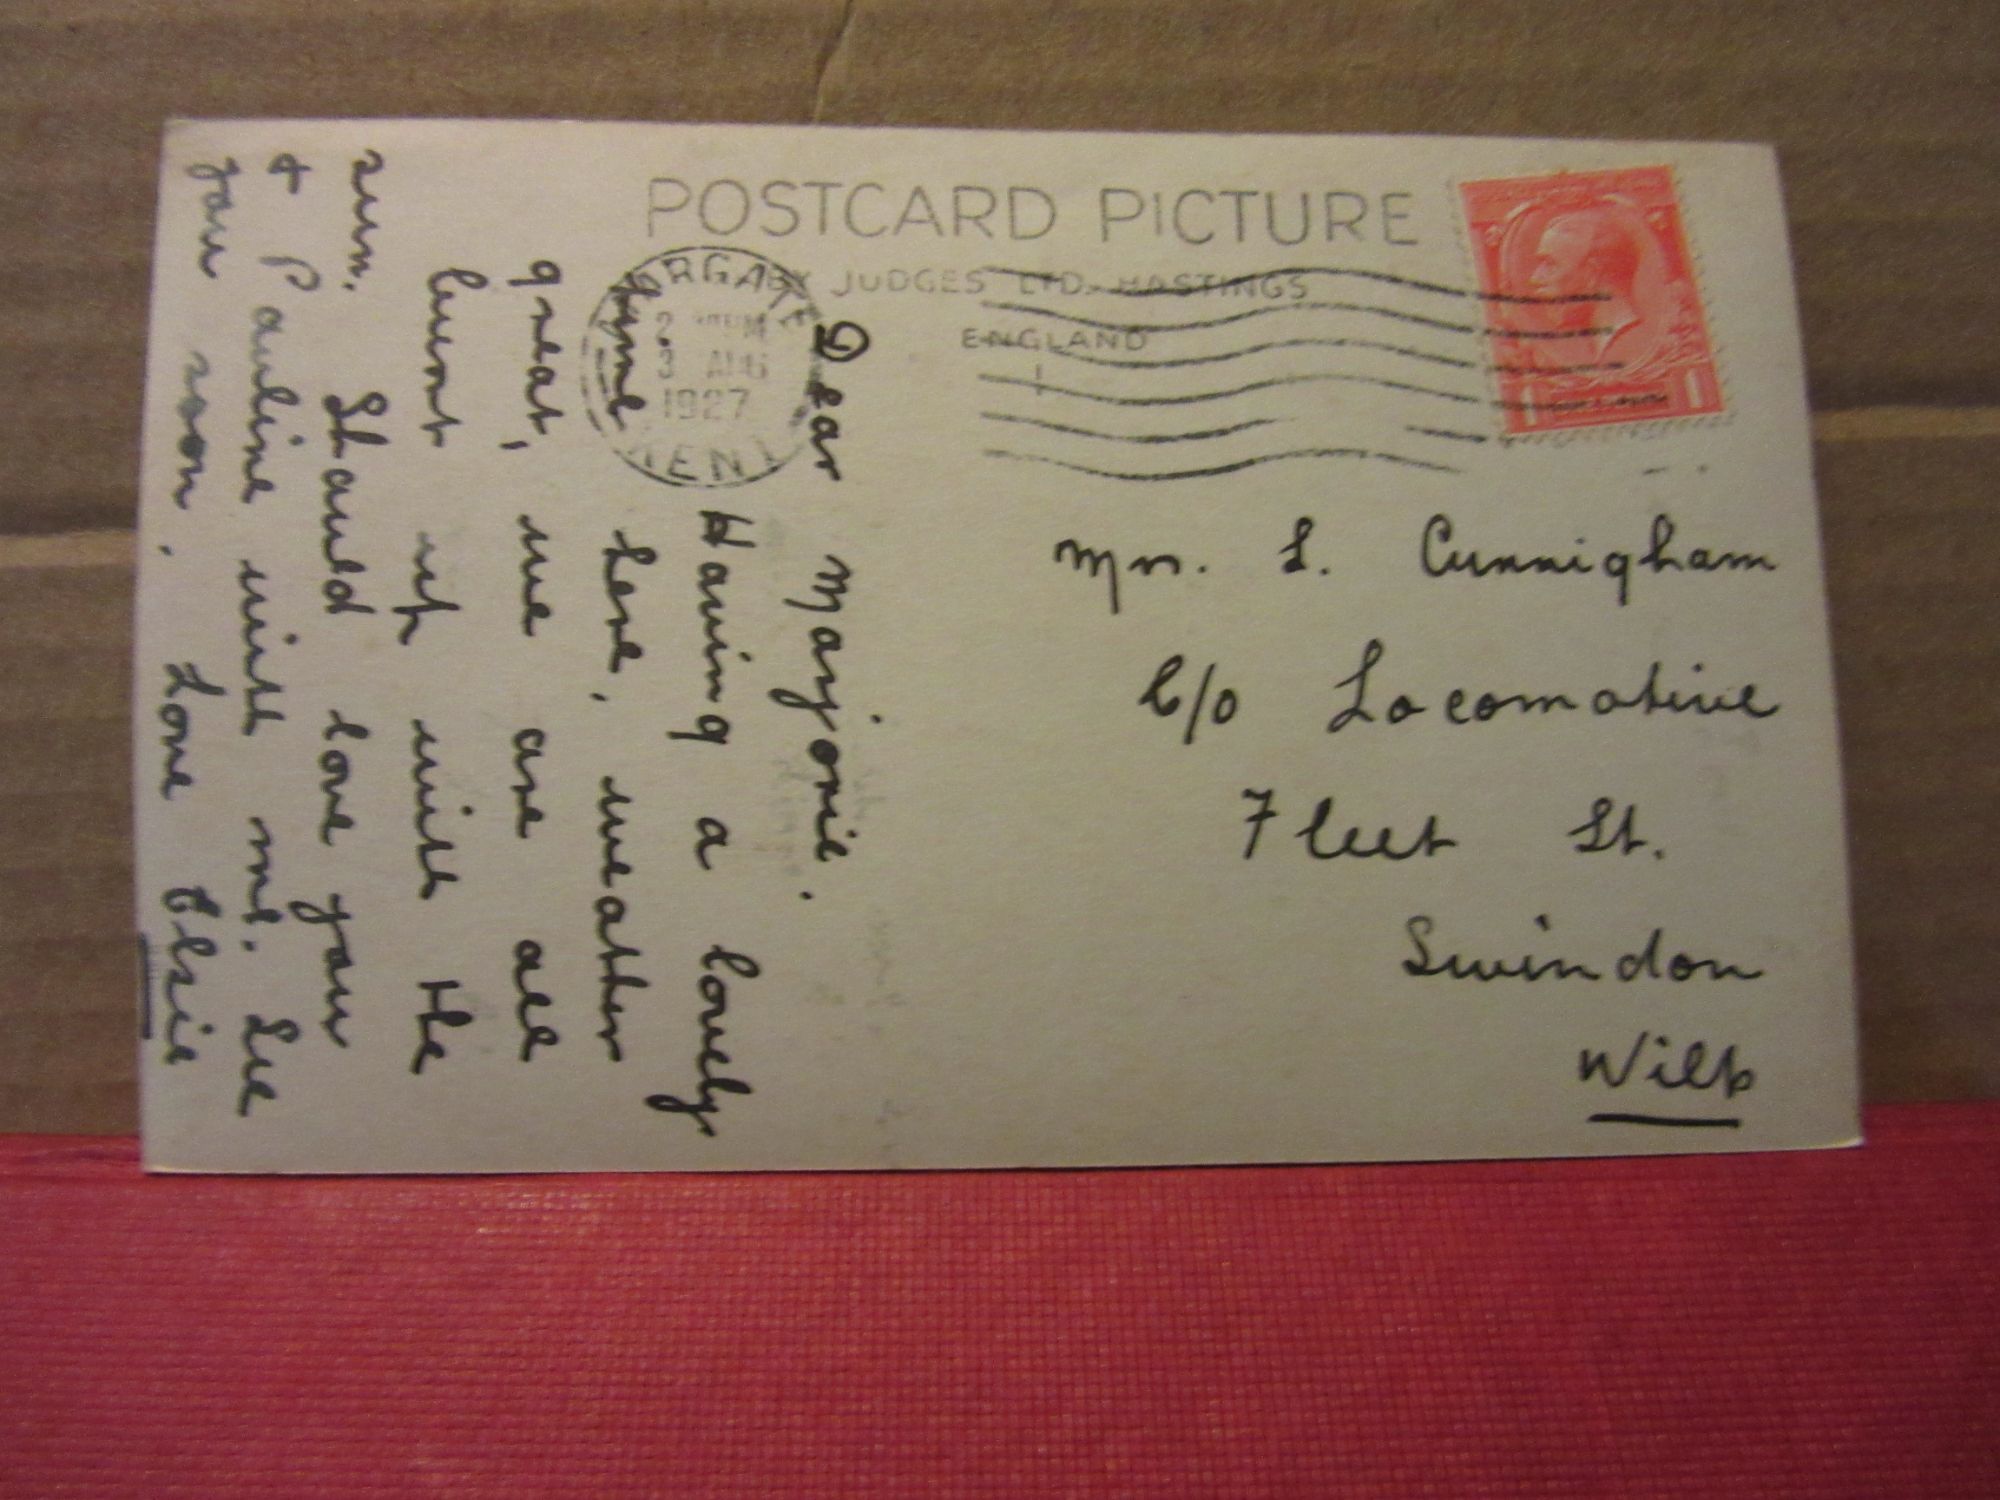 POSTCARD PICTURE
BY JUDGES LTD. HASTINGS
ENGLAND
MARGATE
3 AUG
1927
KENT
1 1
Mrs. L. Cunnigham
C/o Locomotive
Fleet St.
Swindon
Wilts
Dear Marjorie.
Having a lovely
time here, weather
great, we are all
burnt up with the
sun. Should love you
& Pauline with me. See
you soon. Love Elsie